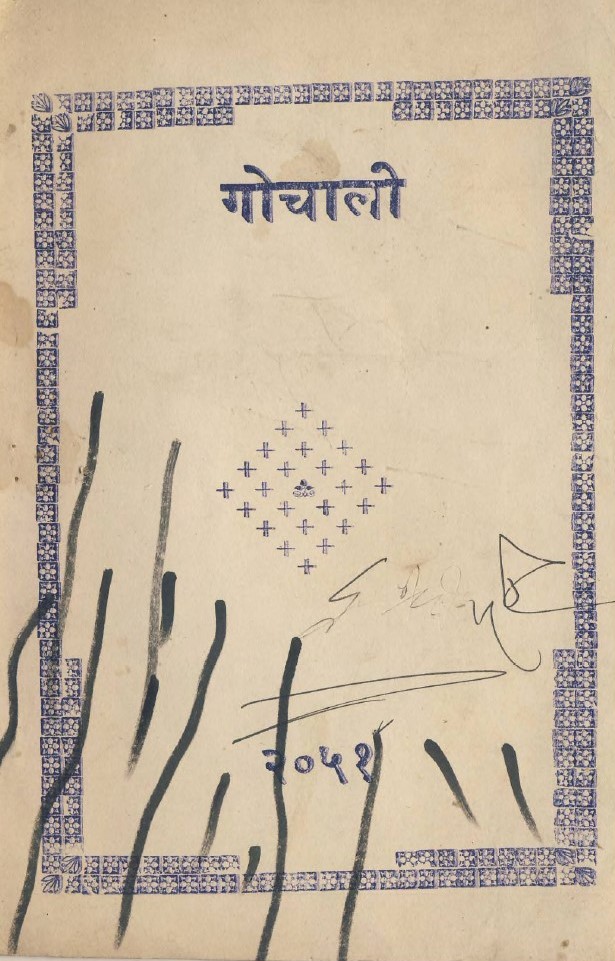 गोचाली
२०५१